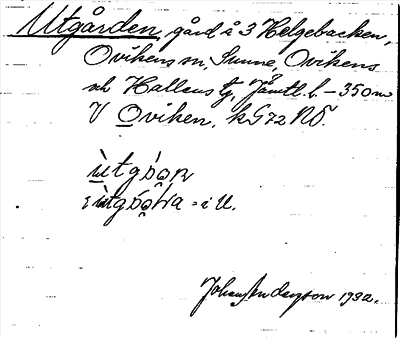 Utgården, gård å 3 Helgebacken,
Ovikens sn, Sunne, Ovikens
och Hallens tg, Jämtl. l. – 350 m
V Oviken, kG72NÖ.
ùtgóọn
i ùtgóọna = i U.
Johan Anderzon 1932.